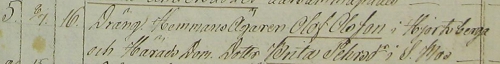 5. 9/7. 16. Dräng Hemmans Ägaren Olof Olofson i Hjortsberga
och Härads Dom. Dotter Brita Pehrsdr i S. Noo